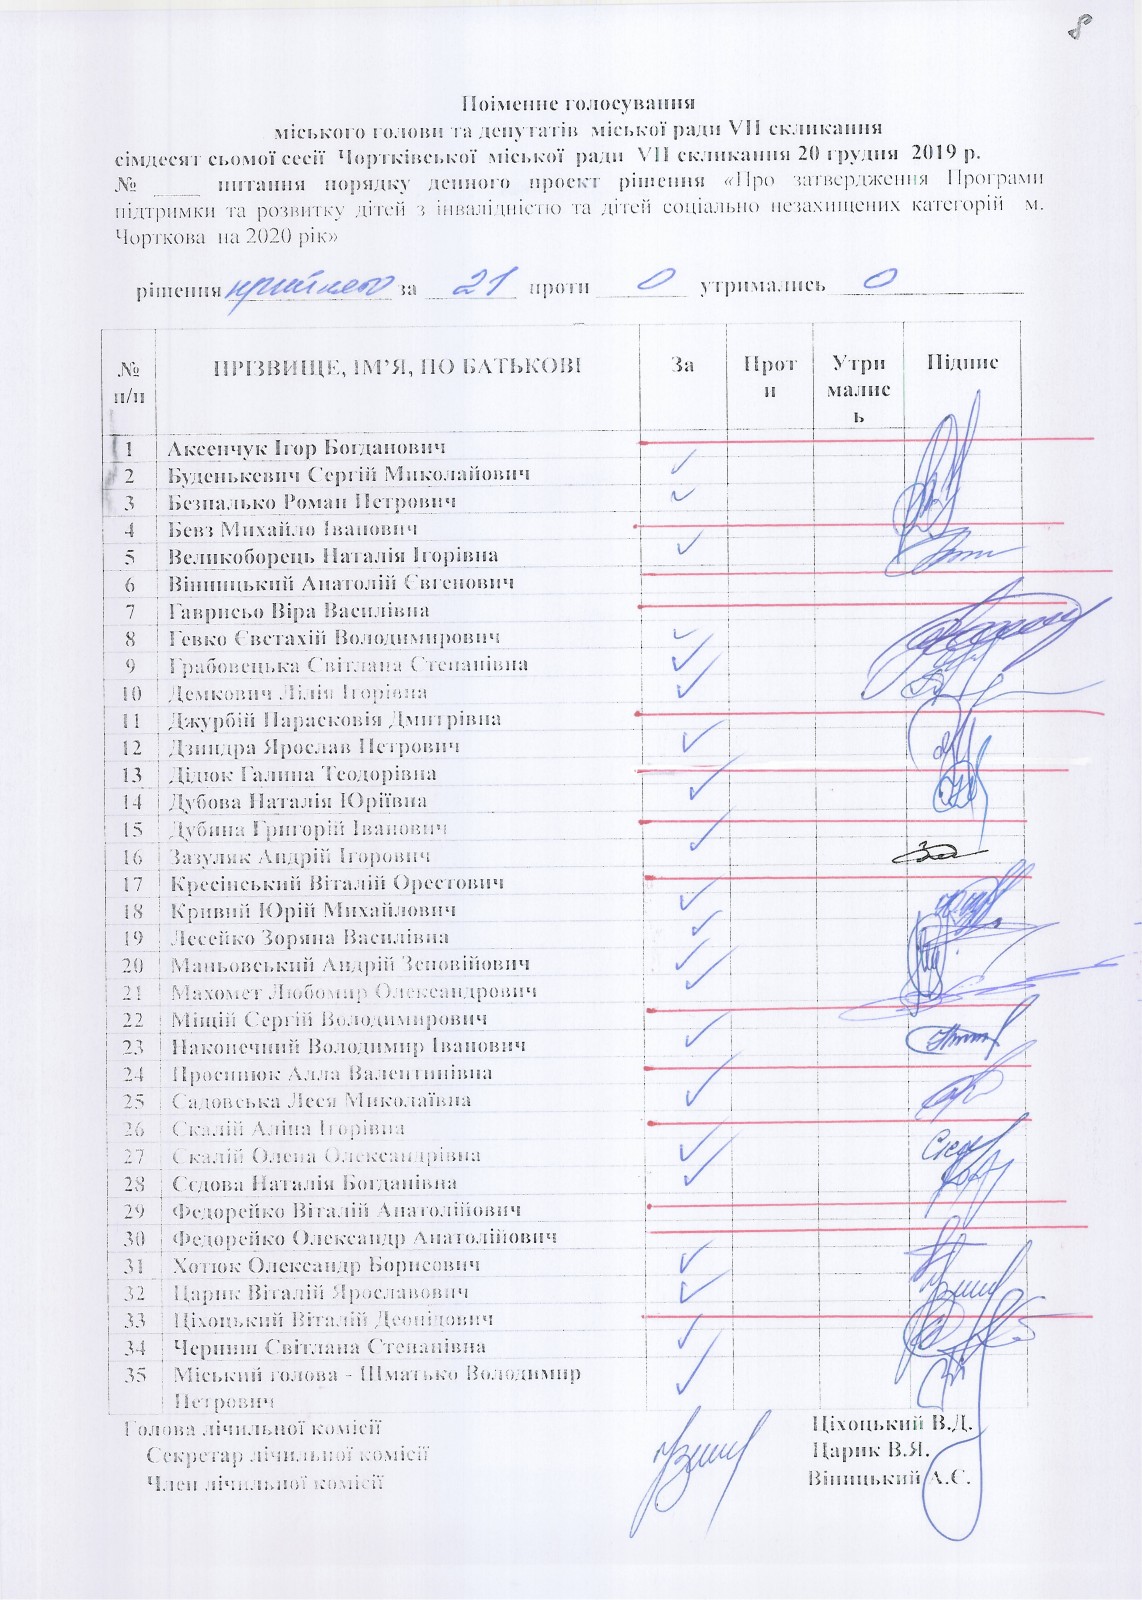 8
Поіменне голосування
міського голови та депутатів міської ради VII скликання
сімдесят сьомої сесії Чортківської міської ради VII скликання 20 грудня 2019 р.
№ ____ питання порядку денного проект рішення «Про затвердження Програми
підтримки та розвитку дітей з інвалідністю та дітей соціально незахищених категорій м.
Чорткова на 2020 рік»
рішення прийнято за 21 проти 0 утримались 0
№ п/п ПРІЗВИЩЕ, ІМ’Я, ПО БАТ�ькові За Прот и Утри малис ь Підпис
1 Аксенчук Ігор Богданович
2 Буденькевич Сергій Миколайович
3 Безпалько Роман Петрович
4 Бевз Михайло Іванович
5 Великоборець Наталія Ігорівна
6 Вінницький Анатолій Євгенович
7 Гаврисьо Віра Василівна
8 Гевко Євстахій Володимирович
9 Грабовецька Світлана Степанівна
10 Демкович Лілія Ігорівна
11 Джурбій Парасковія Дмитрівна
12 Дзиндра Ярослав Петрович
13 Дідюк Галина Теодорівна
14 Дубова Наталія Юріївна
15 Дубина Григорій Іванович
16 Зазуляк Андрій Ігорович
17 Кресінський Віталій Орестович
18 Кривий Юрій Михайлович
19 Лесейко Зоряна Василівна
20 Маньовський Андрій Зеновійович
21 Махомет Любомир Олександрович
22 Міщій Сергій Володимирович
23 Наконечний Володимир Іванович
24 Просинюк Алла Валентинівна
25 Садовська Леся Миколаївна
26 Скалій Аліна Ігорівна
27 Скалій Олена Олександрівна
28 Сєдова Наталія Богданівна
29 Федорейко Віталій Анатолійович
30 Федорейко Олександр Анатолійович
31 Хотюк Олександр Борисович
32 Царик Віталій Ярославович
33 Ціхоцький Віталій Деонідович
34 Черниш Світлана Степанівна
35 Міський голова - Шматько Володимир
Петрович
Голова лічильної комісії Ціхоцький В.Д.
Секретар лічильної комісії Царик В.Я.
Член лічильної комісії Вінницький А.Є.